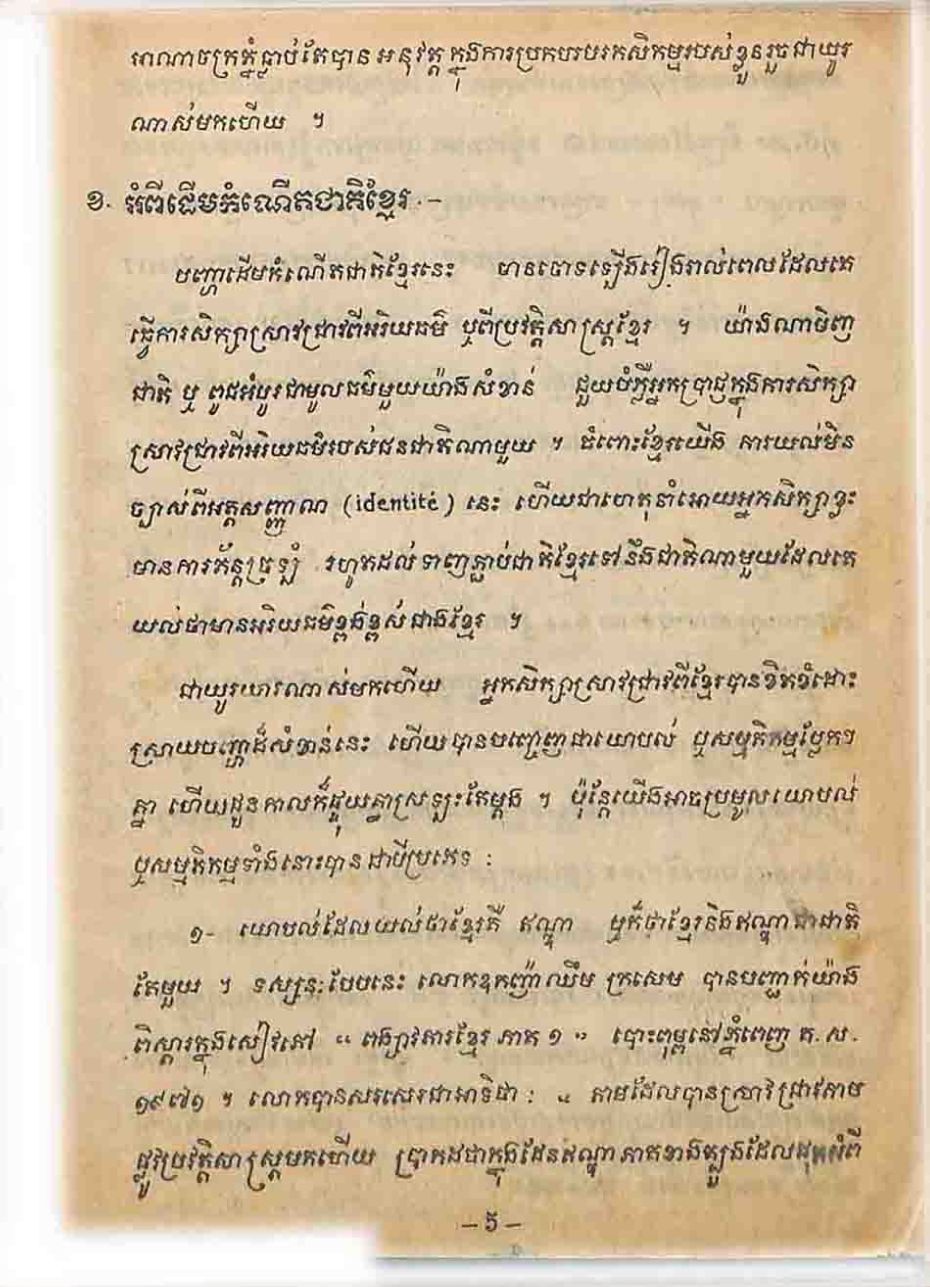 អាណាចក្រភ្នំធ្លាប់តែបានអនុវត្តក្នុងការប្រកបរបរកសិកម្មរបស់ខ្លួនរួចជាយូរ
ណាស់មកហើយ ។
ខ. អំពីដើមកំណើតជាតិខ្មែរ .-
បញ្ហាដើមកំណើតជាតិខ្មែរនេះ មានចោទឡើងរៀងរាល់ពេលដែលគេ
ធ្វើការសិក្សាស្រាវជ្រាវពីអរិយធម៌ ឬពីប្រវត្តិសាស្ត្រខ្មែរ ។ យ៉ាងណាមិញ
ជាតិ ឬ ពូជអំបូរជាមូលធម៌មួយយ៉ាងសំខាន់ ជួយបំភ្លឺអ្នកប្រាជ្ញក្នុងការសិក្សា
ស្រាវជ្រាវពីអរិយធម៌របស់ជនជាតិណាមួយ ។ ចំពោះខ្មែរយើង ការយល់មិន
ច្បាស់ពីអត្តសញ្ញាណ (identité) នេះ ហើយជាហេតុនាំអោយអ្នកសិក្សាខ្លះ
មានការភ័ន្តច្រឡំ រហូតដល់ទាញភ្ជាប់ជាតិខ្មែរទៅនឹងជាតិណាមួយដែលគេ
យល់ថាមានអរិយធម៌ខ្ពង់ខ្ពស់ជាងខ្មែរ ។
ជាយូរយារណាស់មកហើយ អ្នកសិក្សាស្រាវជ្រាវពីខ្មែរបានខិតខំដោះ
ស្រាយបញ្ហាដ៏សំខាន់នេះ ហើយបានបញ្ចេញជាយោបល់ ឬសម្មតិកម្មប្លែកៗ
គ្នា ហើយជួនកាលក៏ផ្ទុយគ្នាស្រឡះតែម្តង ។ ប៉ុន្តែយើងអាចប្រមូលយោបល់
ឬសម្មតិកម្មទាំងនោះបានជាបីប្រភេទ :
១- យោបល់ដែលយល់ថាខ្មែរគឺ ឥណ្ឌា ឬក៏ថាខ្មែរនិងឥណ្ឌាជាជាតិ
តែមួយ ។ ទស្សនៈបែបនេះ លោកឧកញ៉ាឈឹម ក្រសេម បានបញ្ជាក់យ៉ាង
ពិស្តារក្នុងសៀវភៅ “ ពង្សាវតារខ្មែរ ភាគ ១ ” បោះពុម្ពនៅភ្នំពេញ គ.ស.
១៩៧១ ។ លោកបានសរសេរជាអាទិថា : “ តាមដែលបានស្រាវជ្រាវតាម
ផ្លូវប្រវត្តិសាស្ត្រមកហើយ ប្រាកដថាក្នុងដែនឥណ្ឌាភាគខាងត្បូងដែលដុះអំពី
– 5 –